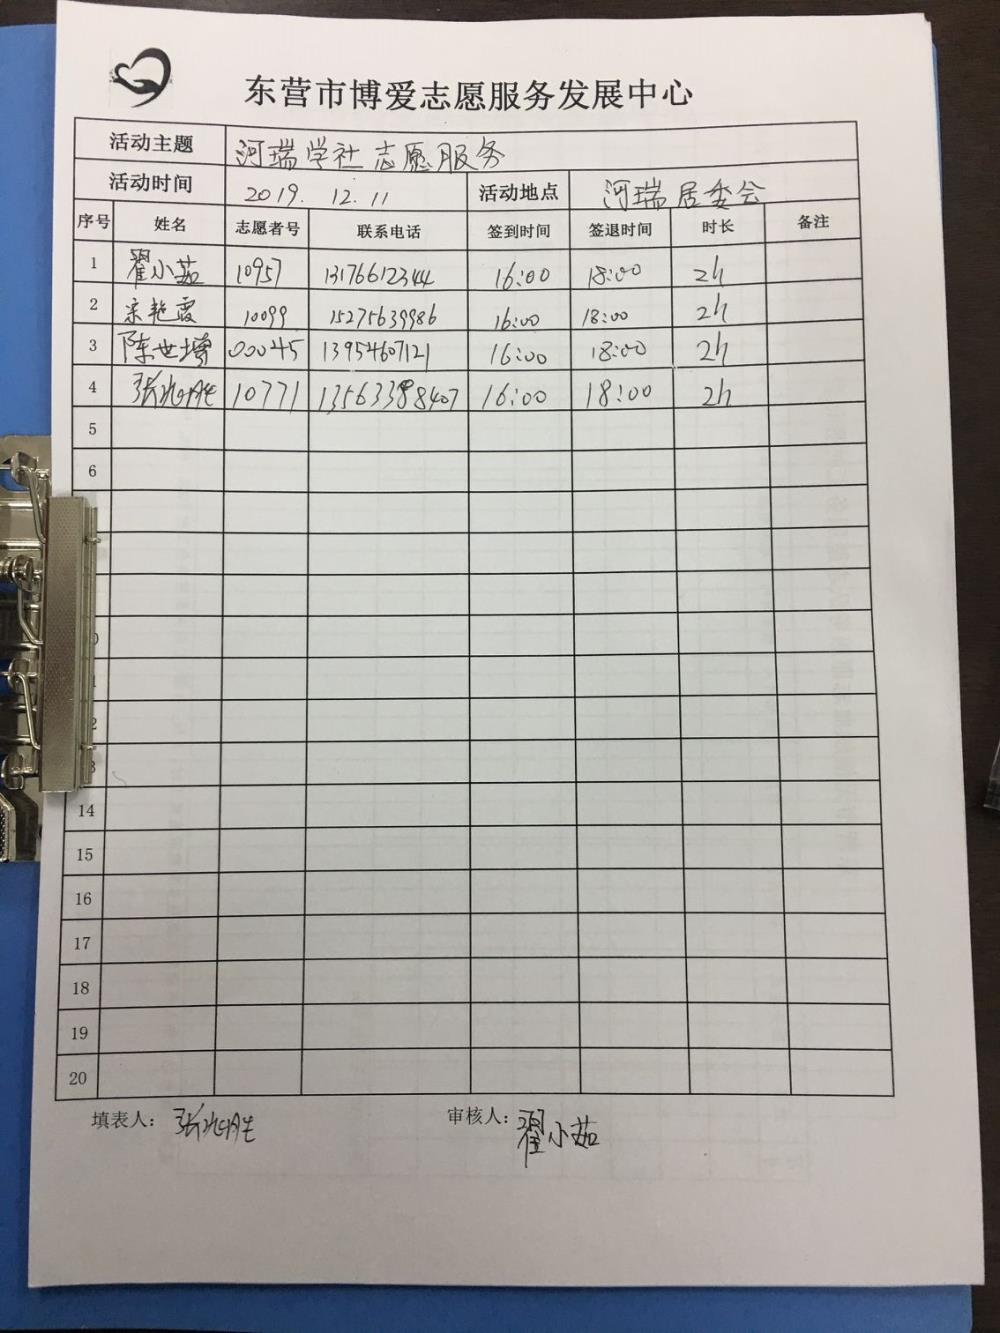 东营市博爱志愿服务发展中心
活动主题 河瑞学社志愿服务
活动时间 2019. 12. 11 活动地点 河瑞居委会
序号 姓名 志愿者号 联系电话 签到时间 签退时间 时长 备注
1 翟小茹 10957 13176612344 16:00 18:00 2h
2 宋艳霞 10099 15275639986 16:00 18:00 2h
3 陈世增 00045 13954607121 16:00 18:00 2h
4 张兆胜 10771 13563398407 16:00 18:00 2h
5
6
14
15
16
17
18
19
20
填表人: 张兆胜 审核人: 翟小茹